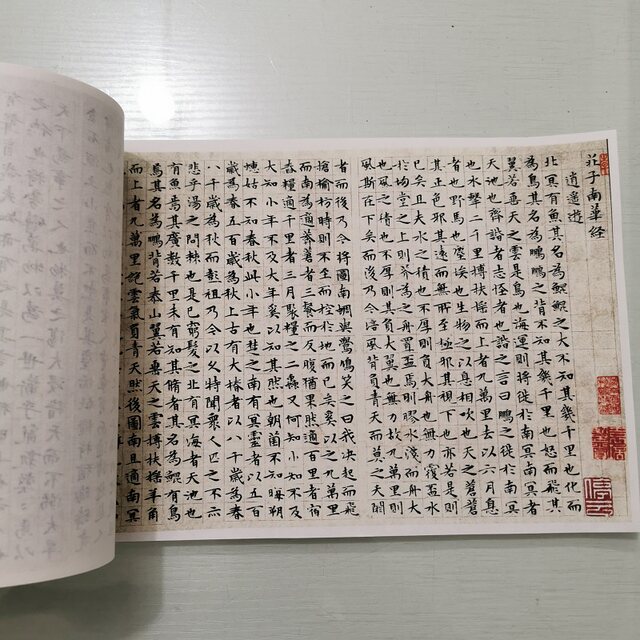 莊子南華经
逍遥遊
北冥有魚其名為鯤鯤之大不知其幾千里也化而
為鳥其名為鵬鵬之背不知其幾千里也怒而飛其
翼若垂天之雲是鳥也海運則將徙於南冥南冥者
天池也齊諧者志怪者也諧之言曰鵬之徙於南冥
也水擊三千里搏扶摇而上者九萬里去以六月息
者也野馬也塵埃也生物之以息相吹也天之蒼蒼
其正色邪其遠而無所至極邪其視下也亦若是則
已矣且夫水之積也不厚則負大舟也無力覆盃水
於坳堂之上則芥為之舟置盃焉則膠水淺而舟大
也風之積也不厚則其負大翼也無力故九萬里則
風斯在下矣而後乃今培風背負青天而莫之夭閼
者而後乃今將圖南蜩與鷽鳩笑之曰我决起而飛
搶榆枋時則不至而控於地而已矣奚以之九萬里
而南為適莽蒼者三飡而反腹猶果然適百里者宿
舂糧適千里者三月聚糧之二蟲又何知小知不及
大知小年不及大年奚以知其然也朝菌不知晦朔
蟪蛄不知春秋此小年也楚之南有冥靈者以五百
歲為春五百歲為秋上古有大椿者以八千歲為春
八千歲為秋而彭祖乃今以久特聞衆人匹之不六
悲乎湯之問棘也是已窮髮之北有冥海者天池也
有魚焉其廣數千里未有知其脩者其名為鯤有鳥
焉其名為鵬背若泰山翼若垂天之雲搏扶摇羊角
而上者九萬里絶雲氣負青天然後圖南且適南冥